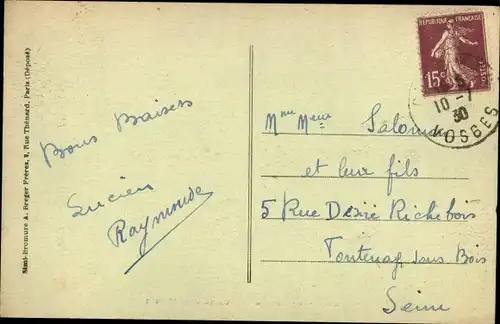 Simi-Bromure A. Breger Frères, 9, Rue Thénard, Paris (Déposé)
Bons Baisers
Lucien
Raymonde
REPUBLIQUE FRANÇAISE
15c
POSTES
10-7
30
VOSGES
Mme Meur Salomon
et leur fils
5 Rue Désiré Richebois
Fontenay sous Bois
Seine